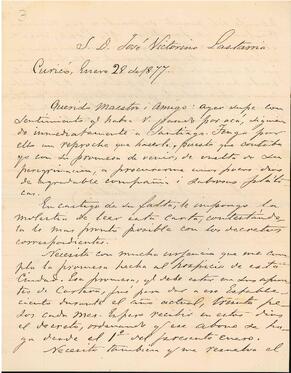 3
S. D. José Victorino Lastarria
Curicó, Enero 28 de 1877.
Querido Maestro i Amigo: Ayer supe con
sentimiento q' habia V. pasado por acá, siguien
do inmediatamente a Santiago. Tengo por
ello un reproche que hacerle, puesto que contaba
yo con su promesa de venir, de vuelta de su
peregrinacion, a procurarme unos pocos dias
de agradable compañia i sabrosas pláti
cas.
En castigo de su falta, le impongo la
molestia de leer esta carta, contestándo
la lo mas pronto posible con los decretos
correspondientes.
Necesito con mucha urjencia que me cum
pla la promesa hecha al hospicio de esta
ciudad. Esa promesa, q' debe estar en sus apun
tes de Cartera, fué para dar a ese Estableci
miento durante el año actual, treinta pe
sos cada mes. Espero recibir en estos dias
el decreto, ordenando q' ese abono se ha
ga desde el 1º del presente enero.
Necesito tambien q' me resuelva el